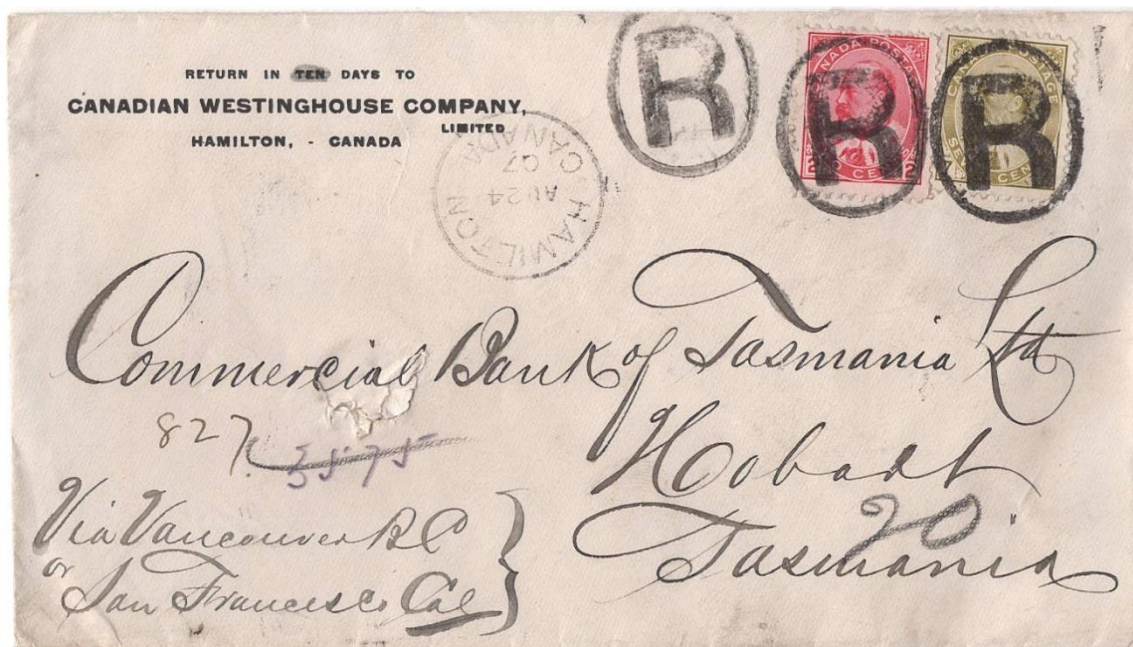 RETURN IN TEN DAYS TO
CANADIAN WESTINGHOUSE COMPANY,
LIMITED
HAMILTON, - CANADA
HAMILTON
CANADA
AU 24
07
R
R
R
CANADA POSTAGE
2 CENTS 2
CANADA POSTAGE
SEVEN CENTS
Commercial Bank of Tasmania Ltd
827
Hobart
20
Tasmania
Via Vancouver B C
or
San Francisco Cal